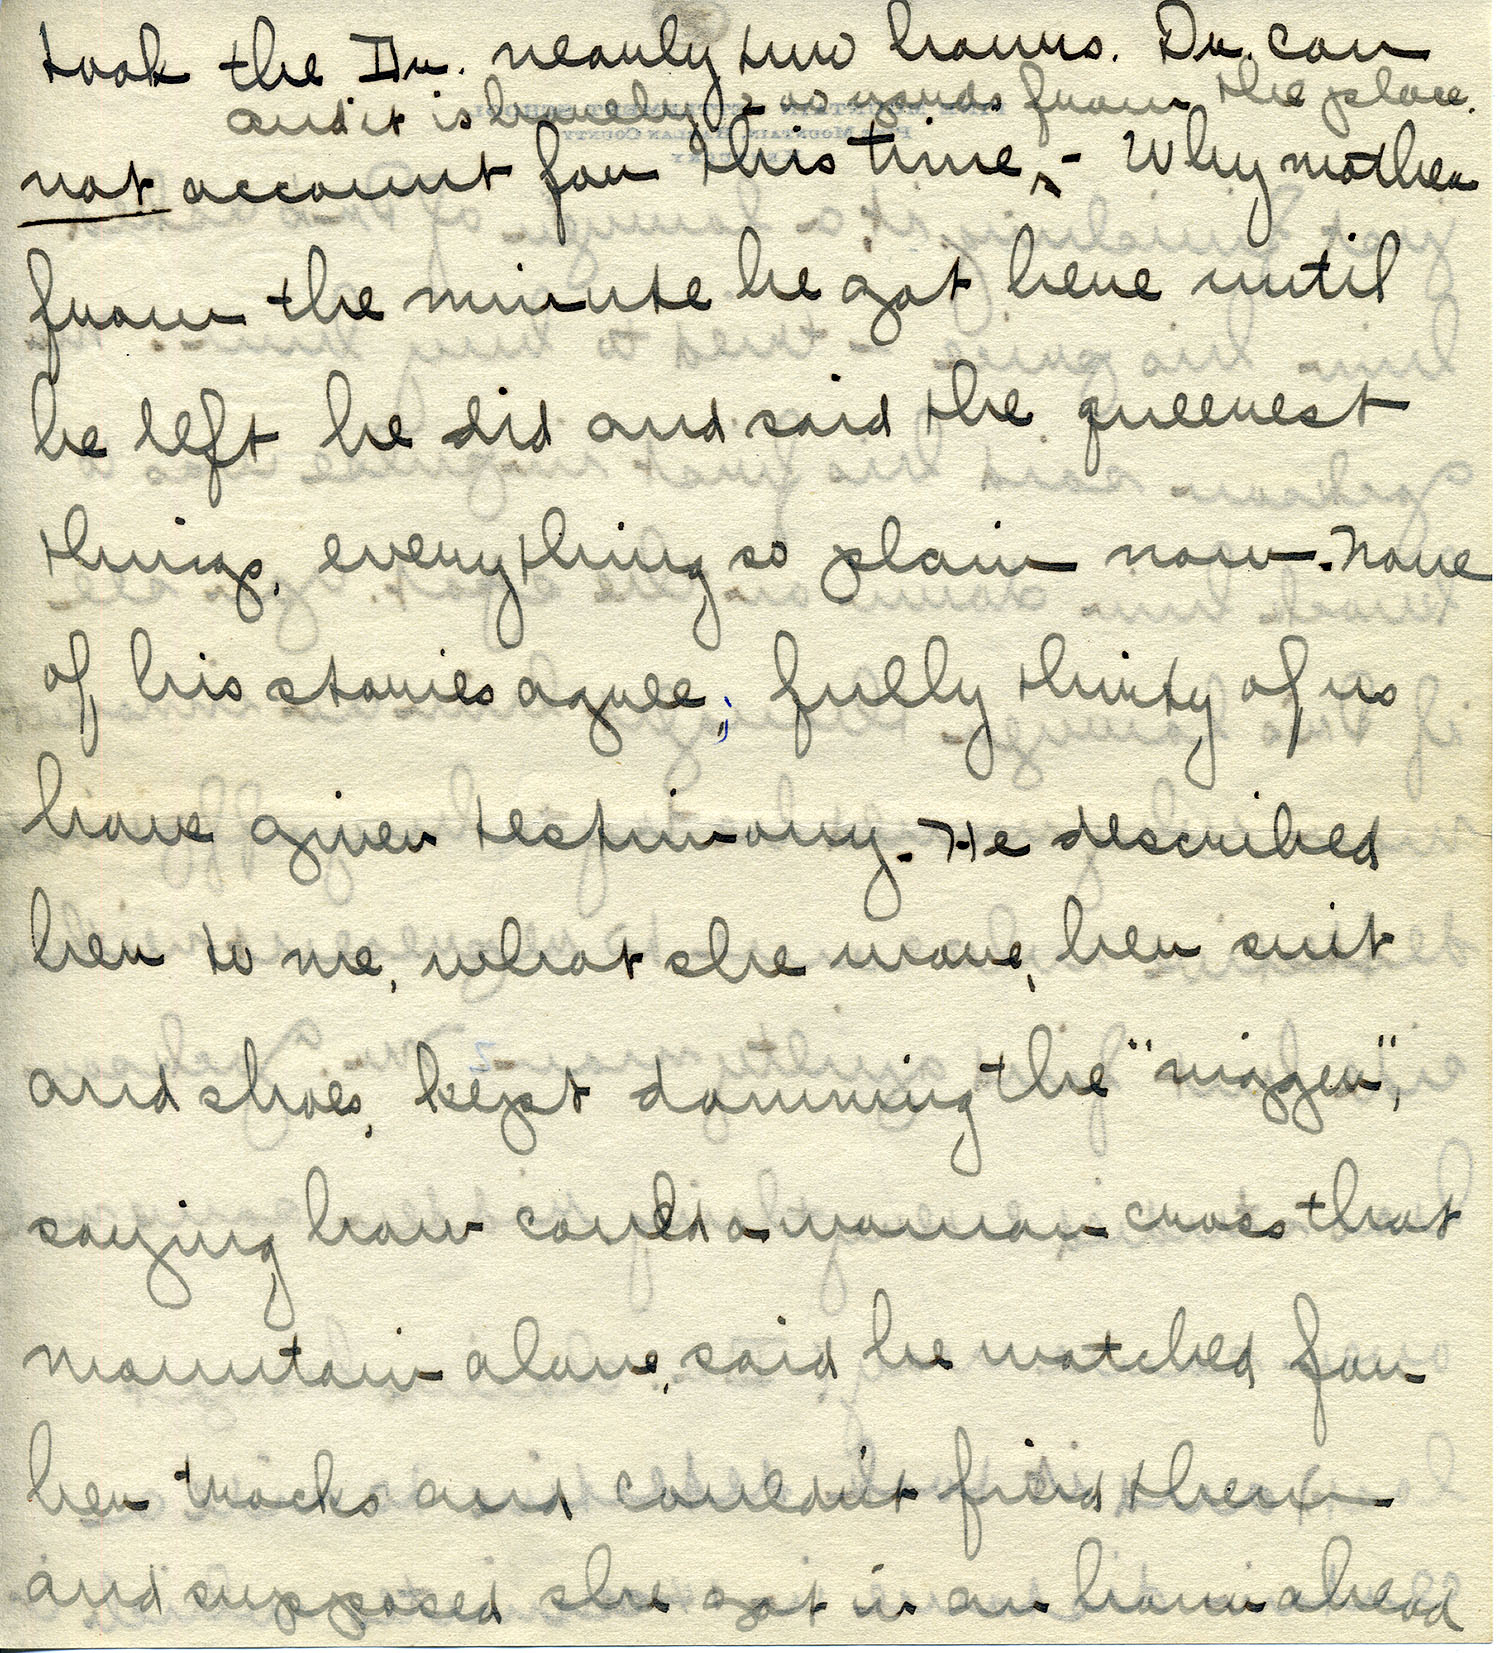 took the Dr. nearly two hours. Dr. can
and it is barely 200 yards from the place.
not account for this time, - Why mother
from the minute he got here until
he left he did and said the queerest
things, everything so plain now. None
of his stories agree; fully thirty of us
have given testimony. He described
her to me, what she wore, her suit
and shoes, kept damning the "nigger",
saying how could a woman cross that
mountain alone, said he watched for
her tracks and couldn't find them
and supposed she got in an hour ahead